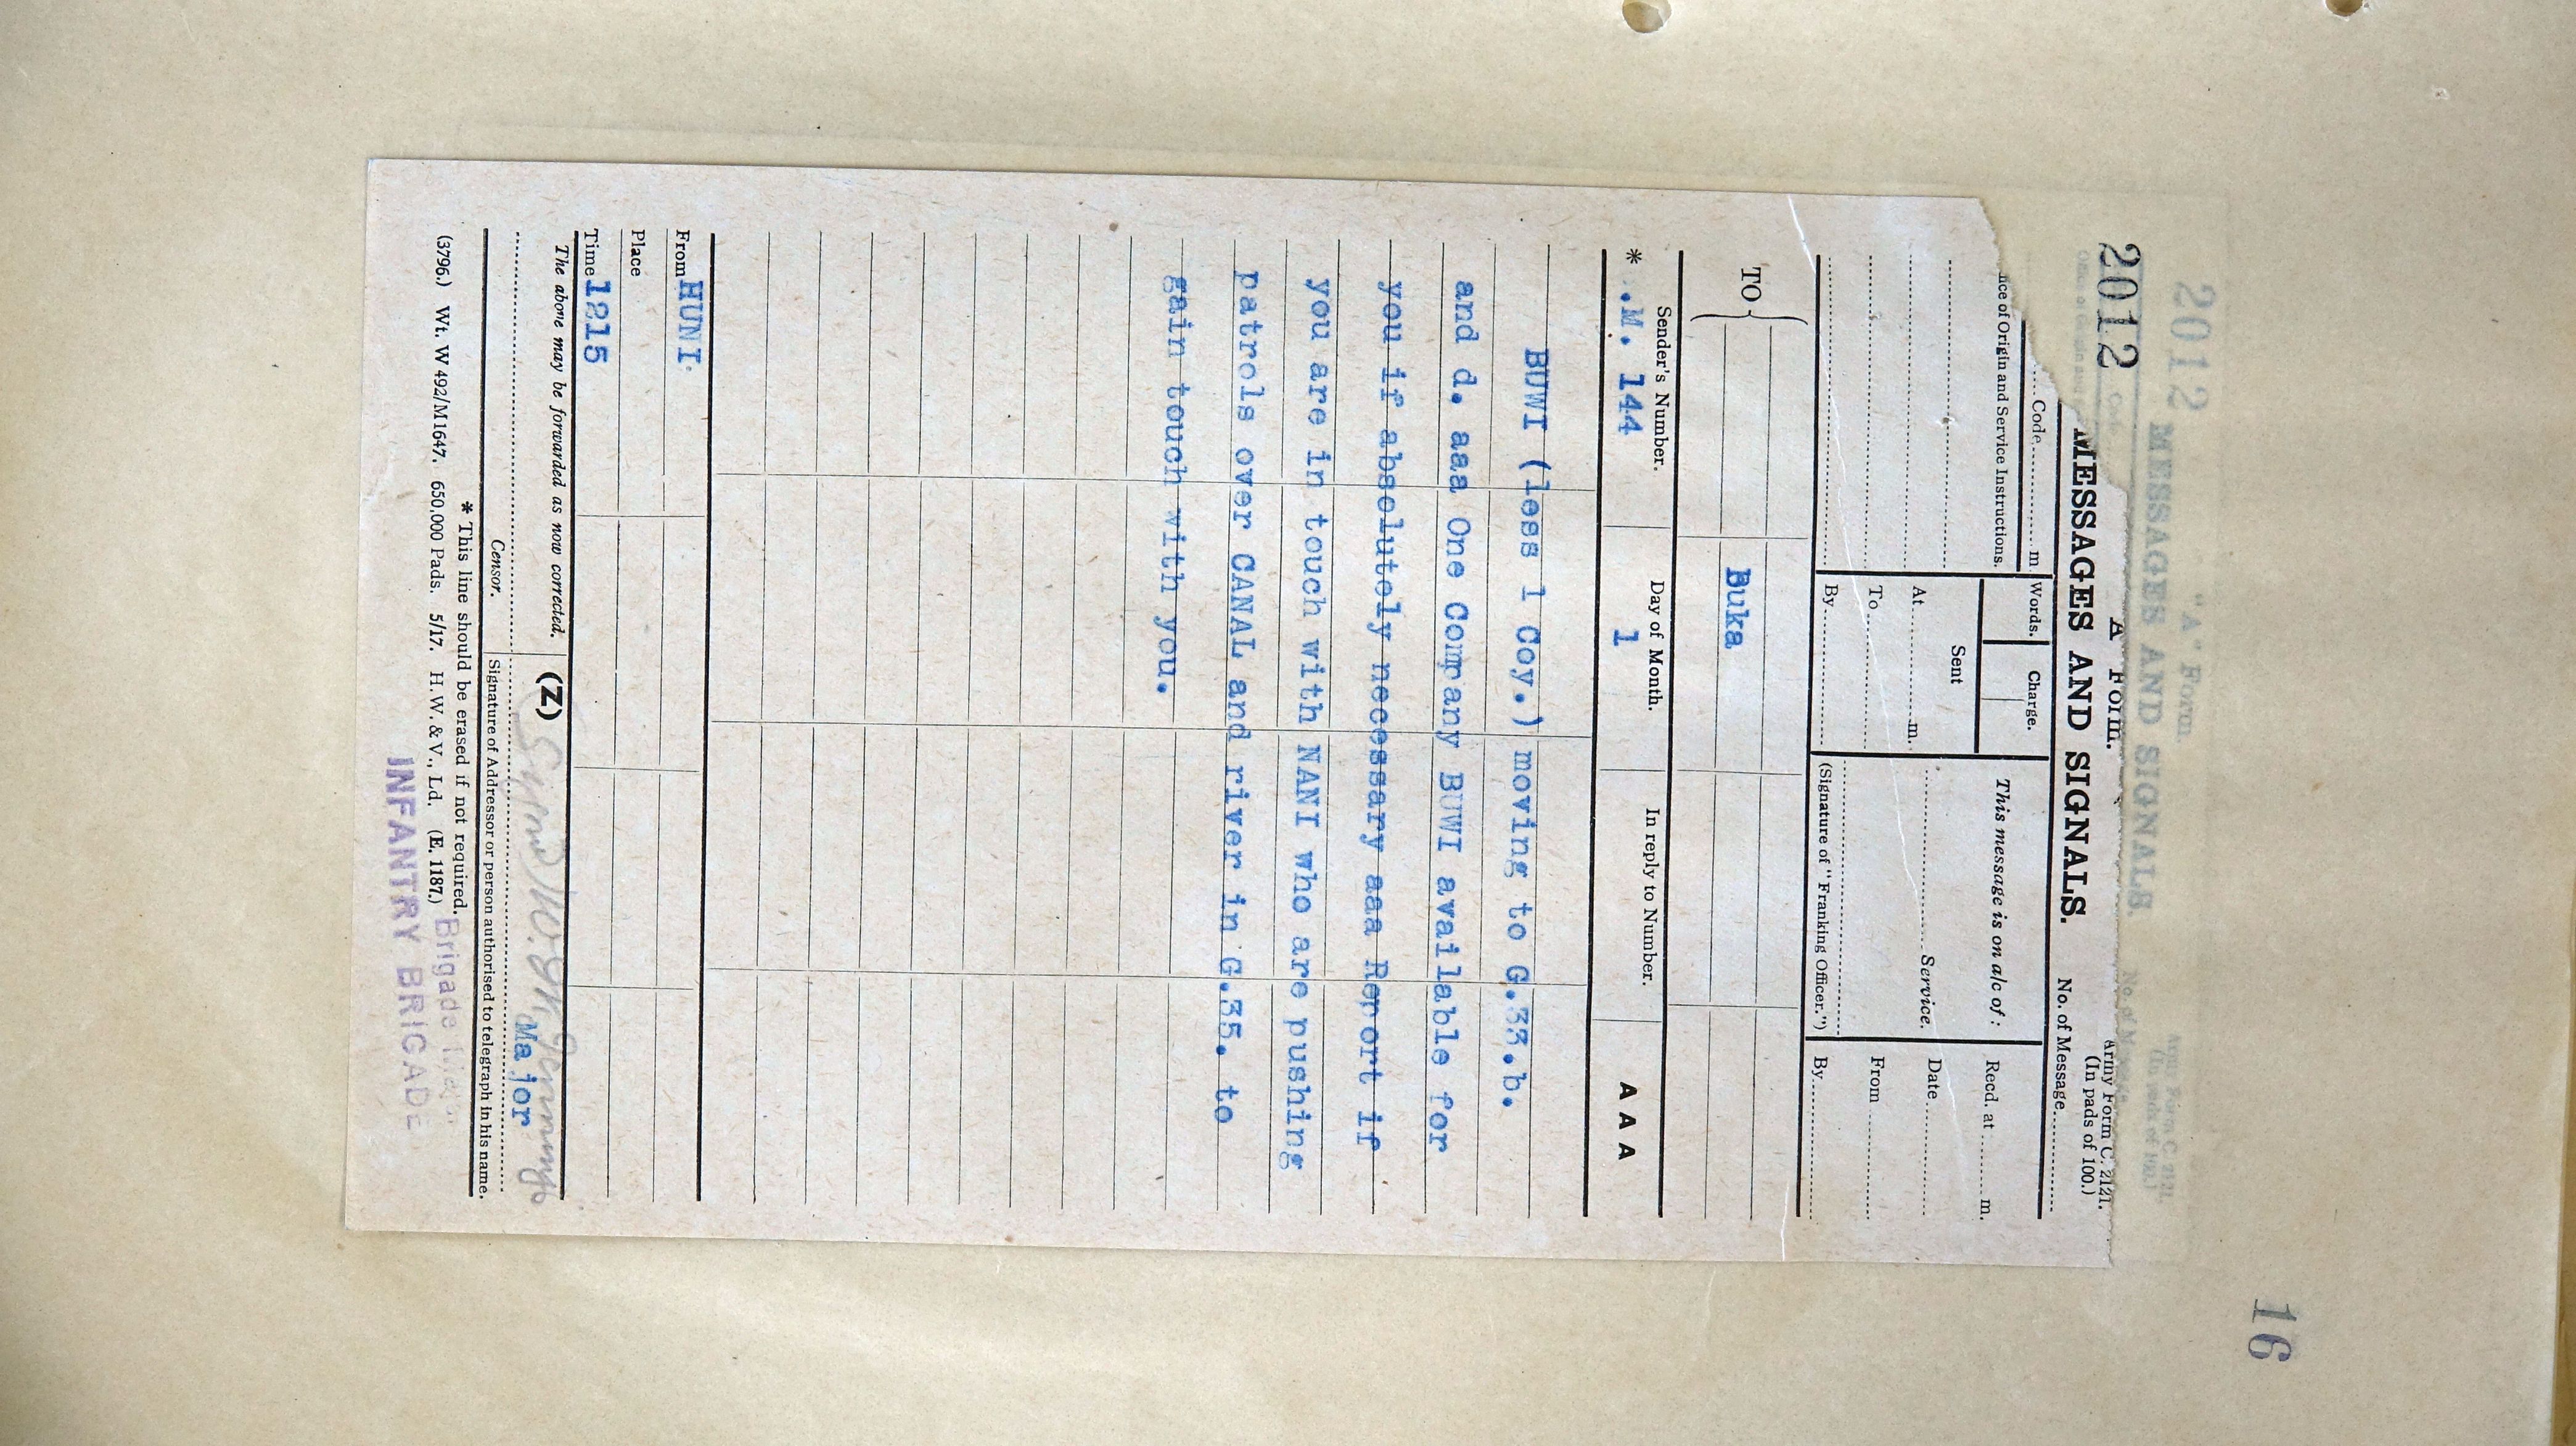 2012
16
"A" Form.
MESSAGES AND SIGNALS.
Army Form C. 2121.
(In pads of 100.)
No. of Message
Code m
Words. Charge.
This message is on a/c of :
Recd. at m.
ice of Origin and Service Instructions.
Sent
Service.
Date
At m.
From
To
By
(Signature of "Franking Officer.")
By
TO
Buka
Sender's Number. Day of Month. In reply to Number.
* .M. 144 1 A A A
BUWI (less 1 Coy.) moving to G.33.b.
and d. aaa One Company BUWI available for
you if absolutely necessary aaa Report if
you are in touch with NANI who are pushing
patrols over CANAL and river in G.35. to
gain touch with you.
From HUNI
Place
Time 1215
The above may be forwarded as now corrected. (Z)
Major
Censor. Signature of Addressor or person authorised to telegraph in his name.
* This line should be erased if not required.
(3796.) Wt. W 492/M1647. 650,000 Pads. 5/17. H.W. & V., Ld. (E. 1187.)
Brigade
INFANTRY BRIGADE